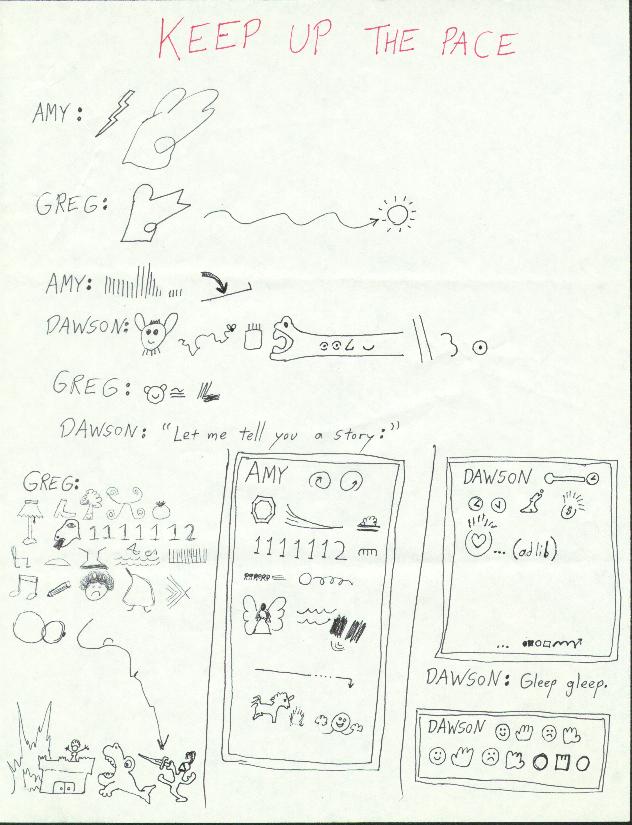 KEEP UP THE PACE
AMY:
GREG:
AMY:
DAWSON:
GREG:
DAWSON: "Let me tell you a story:"
GREG:
1111112
AMY
1111112
DAWSON
... (ad lib)
...
DAWSON: Gleep gleep.
DAWSON